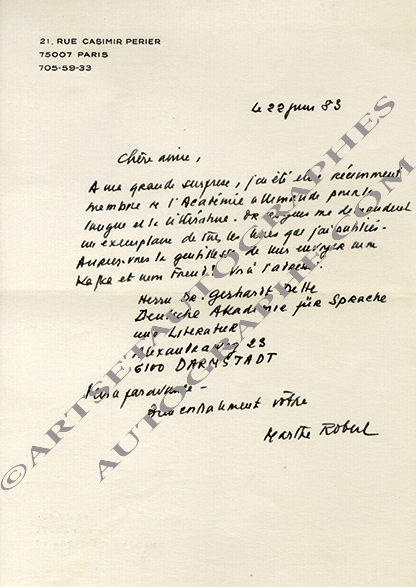 21, RUE CASIMIR PERIER
75007 PARIS
705-59-33
Le 22 juin 83
Chère amie,
A ma grande surprise, j'ai été élue récemment
membre de l'Académie allemande pour la
langue et la littérature. Or me demandent
un exemplaire de tous les livres que j'ai publiés.
Auriez-vous la gentillesse de leur envoyer mon
Kafka et mon Freud? Voici l'adresse:
Herrn Dr. Gerhardt Dette
Deutsche Akademie für Sprache
und Literatur
Alexandraweg 23
6100 DARMSTADT
Merci par avance -
Très cordialement vôtre
Marthe Robert
©ARTSETAUTOGRAPHES
AUTOGRAPHES.COM